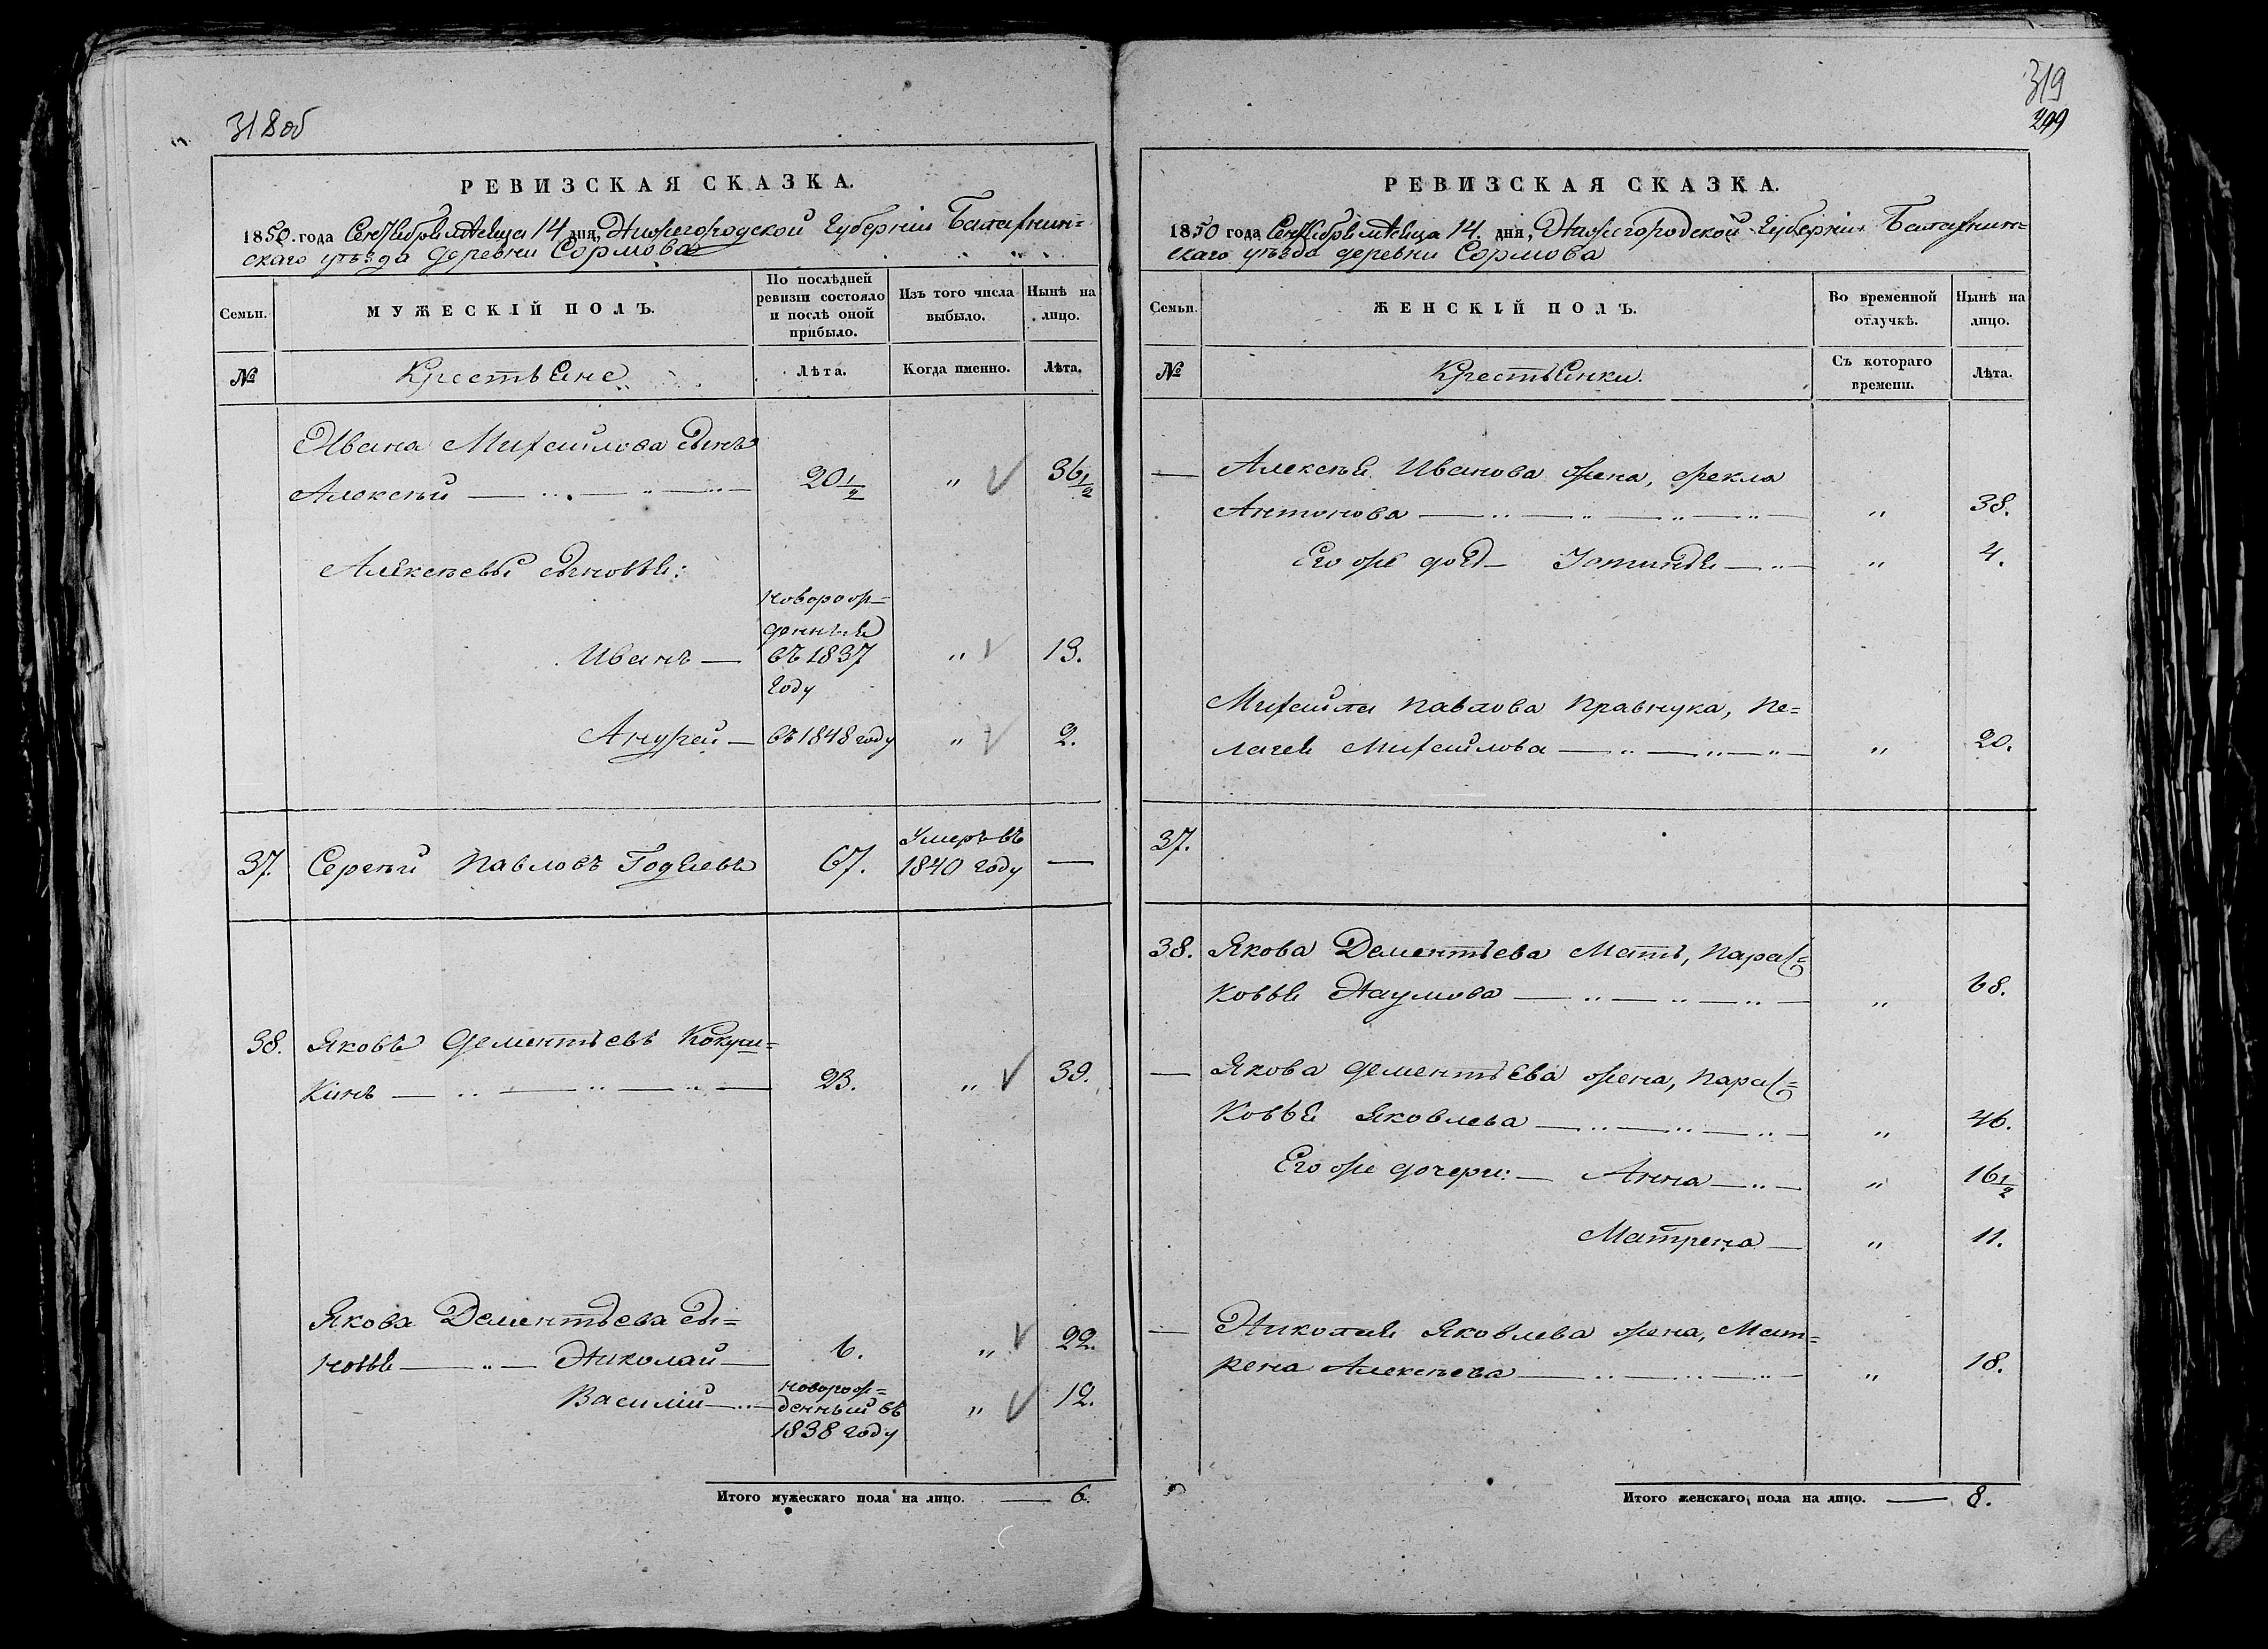 318 об
РЕВИЗСКАЯ СКАЗКА.
1850 года Сентября месяца 14 дня, Нижегородской Губерніи Балахнин=
скаго уѣзда деревни Сормова
Семьи.
МУЖЕСКІЙ ПОЛЪ.
По послѣдней
ревизіи состояло
и послѣ оной
прибыло.
Изъ того числа
выбыло.
Нынѣ на
лицо.
№
Крестьяне
Лѣта.
Когда именно.
Лѣта.
Ивана Михайлова сынъ
Алексѣй 20 1/2 " 36 1/2
Алексѣевы сыновья:
новорож=
денные
Иванъ въ 1837 " 13.
году
Андрей въ 1848 году " 2.
Умеръ въ
37. Сергѣй Павловъ 67. 1840 году —
38. Яковъ Дементьевъ Кокуш=
кинъ 23. " 39.
Якова Дементьева сы=
новья Николай 6. " 22.
новорож=
Василій денный въ " 12.
1838 году
Итого мужескаго пола на лицо. — 6.
319
299
РЕВИЗСКАЯ СКАЗКА.
1850 года Сентября месяца 14. дня, Нижегородской Губерніи Балахнин=
скаго уѣзда деревни Сормова
Семьи.
ЖЕНСКІЙ ПОЛЪ.
Во временной
отлучкѣ.
Нынѣ на
лицо.
№
Крестьянки.
Съ котораго
времени.
Лѣта.
— Алексѣя Иванова жена, Фекла
Антонова " 38.
Его же дочь Устинья " 4.
Михайлы Павлова правнука, Пе=
лагея Михайлова " 20.
37.
38. Якова Дементьева мать, Парас=
ковья Наумова " 68.
— Якова Дементьева жена, Парас=
ковья Яковлева " 46.
Его же дочери: — Анна " 16 1/2
Матрена " 11.
— Николая Яковлева жена, Мат=
рена Алексѣева " 18.
Итого женскаго пола на лицо. — 8.